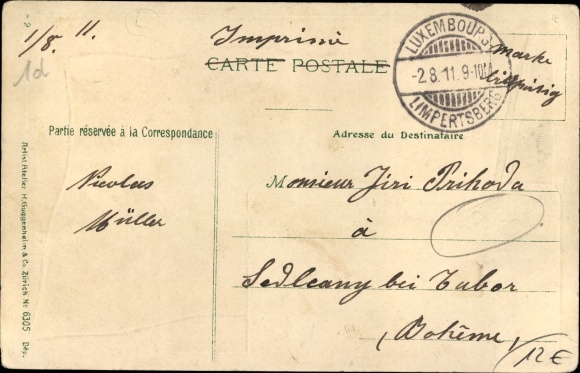 1/8. 11.
1d
Imprimé
CARTE POSTALE
LUXEMBOURG
-2.8.11.9-10
LIMPERTSBERG
Marke
Partie réservée à la Correspondance
Adresse du Destinataire
Nicolas
Müller
Monsieur Jiri Prihoda
à
Sedlcany bei Tabor
(Bohême)
12€
Artist Atelier H. Guggenheim & Co. Zürich No 6305 Dép.